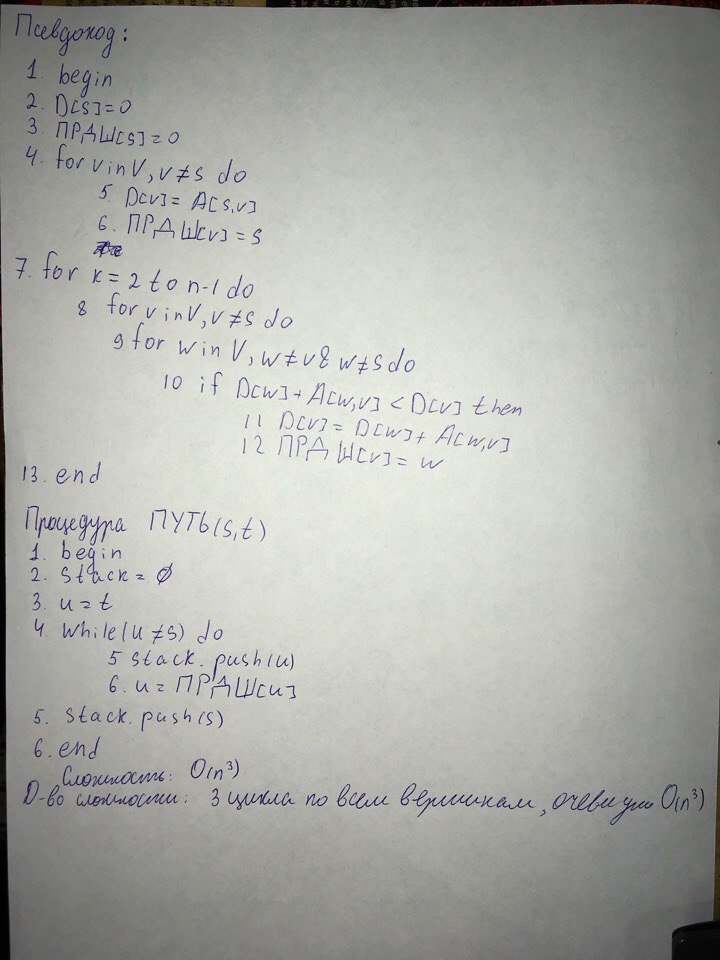 Псевдокод:
1. begin
2. D[s]=0
3. ПРДШ[s]=0
4. for v in V, v≠s do
5. D[v]= A[s,v]
6. ПРДШ[v]=s
7. for k=2 to n-1 do
8 for v in V, v≠s do
9 for w in V, w≠v & w≠s do
10 if D[w]+A[w,v]<D[v] then
11 D[v]=D[w]+A[w,v]
12 ПРДШ[v]=w
13. end
Процедура ПУТЬ(s,t)
1. begin
2. Stack=∅
3. u=t
4. while(u≠s) do
5 stack.push(u)
6. u=ПРДШ[u]
5. stack.push(s)
6. end
Сложность: O(n³)
D-во сложности: 3 цикла по всем вершинам, очевидно O(n³)